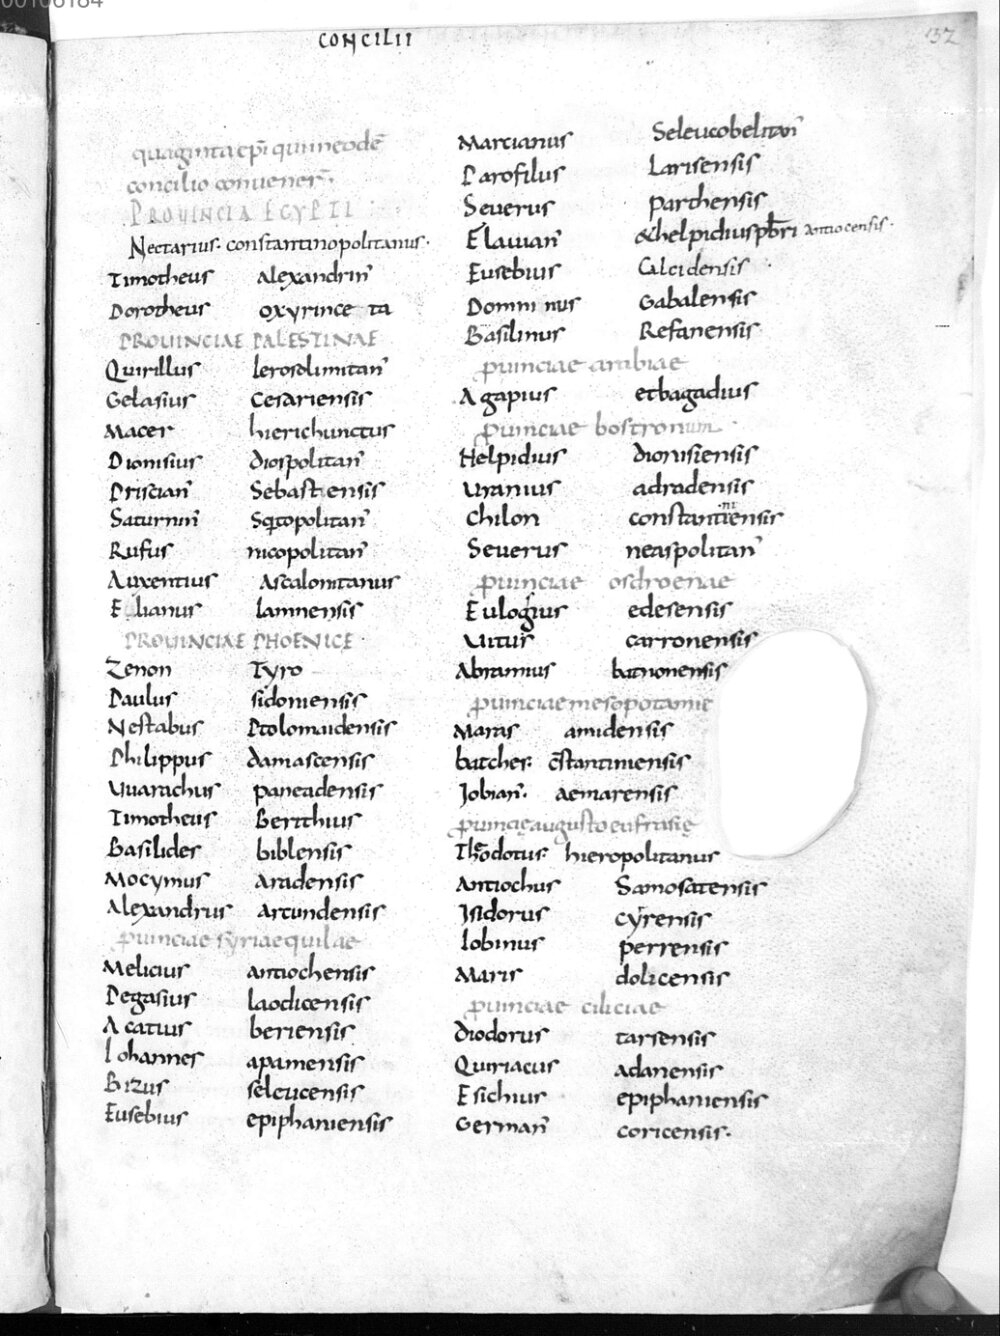 CONCILII
132
quaginta ep̄i qui in eodē
concilio convener̄.
PROUINCIA EGYPTI
Nectarius. constantinopolitanus.
Timotheus alexandrin̄
Dorotheus oxyrince ta
PROUINCIAE PALESTINAE
Quirillus Ierosolimitan̄
Gelasius Cesariensis
Macer hierichunctus
Dionisius diospolitan̄
Priscian̄ Sebastiensis
Saturnin̄ Sqtopolitan̄
Rufus nicopolitan̄
Auxentius Ascalonitanus
Elianus lamnensis
PROUINCIAE PHOENICE
Zenon Tyro
Paulus sidoniensis
Nestabus Ptolomaidensis
Philippus damascensis
Uuarachus paneadensis
Timotheus Berithius
Basilides biblensis
Mocymus Aradensis
Alexandrus Arcundensis
puinciae syriaequilae
Melicius antiochensis
Pegasius laodicensis
Acatius beriensis
Iohannes apamensis
Bizus seleucensis
Eusebius epiphaniensis
Marcianus Seleucobelitan̄
Parofilus Larisensis
Seuerus parthensis
Elauian̄ &helpidius pb̄ri antiocensis.
Eusebius Calcidensis
Domni nus Gabalensis
Basilinus Refanensis
puinciae arabiae
Agapius et bagadius
puinciae bostronum
Helpidius dionisiensis
Uranius adradensis
Chilon constantiensis
Seuerus neaspolitan̄
puinciae osdroenae
Eulogius edesensis
Uitus carronensis
Abramius batnonensis
puinciae mesopotamie
Maras amidensis
batches c̄stantiniensis
Iobian̄. aemarensis
puincię augusto eufrasię
Theodotus hieropolitanus
Antiochus Samosatensis
Isidorus cyrensis
Iobinus perrensis
Maris dolicensis
puinciae ciliciae
Diodorus tarsensis
Quiriacus adanensis
Esichius epiphaniensis
German̄ coricensis.